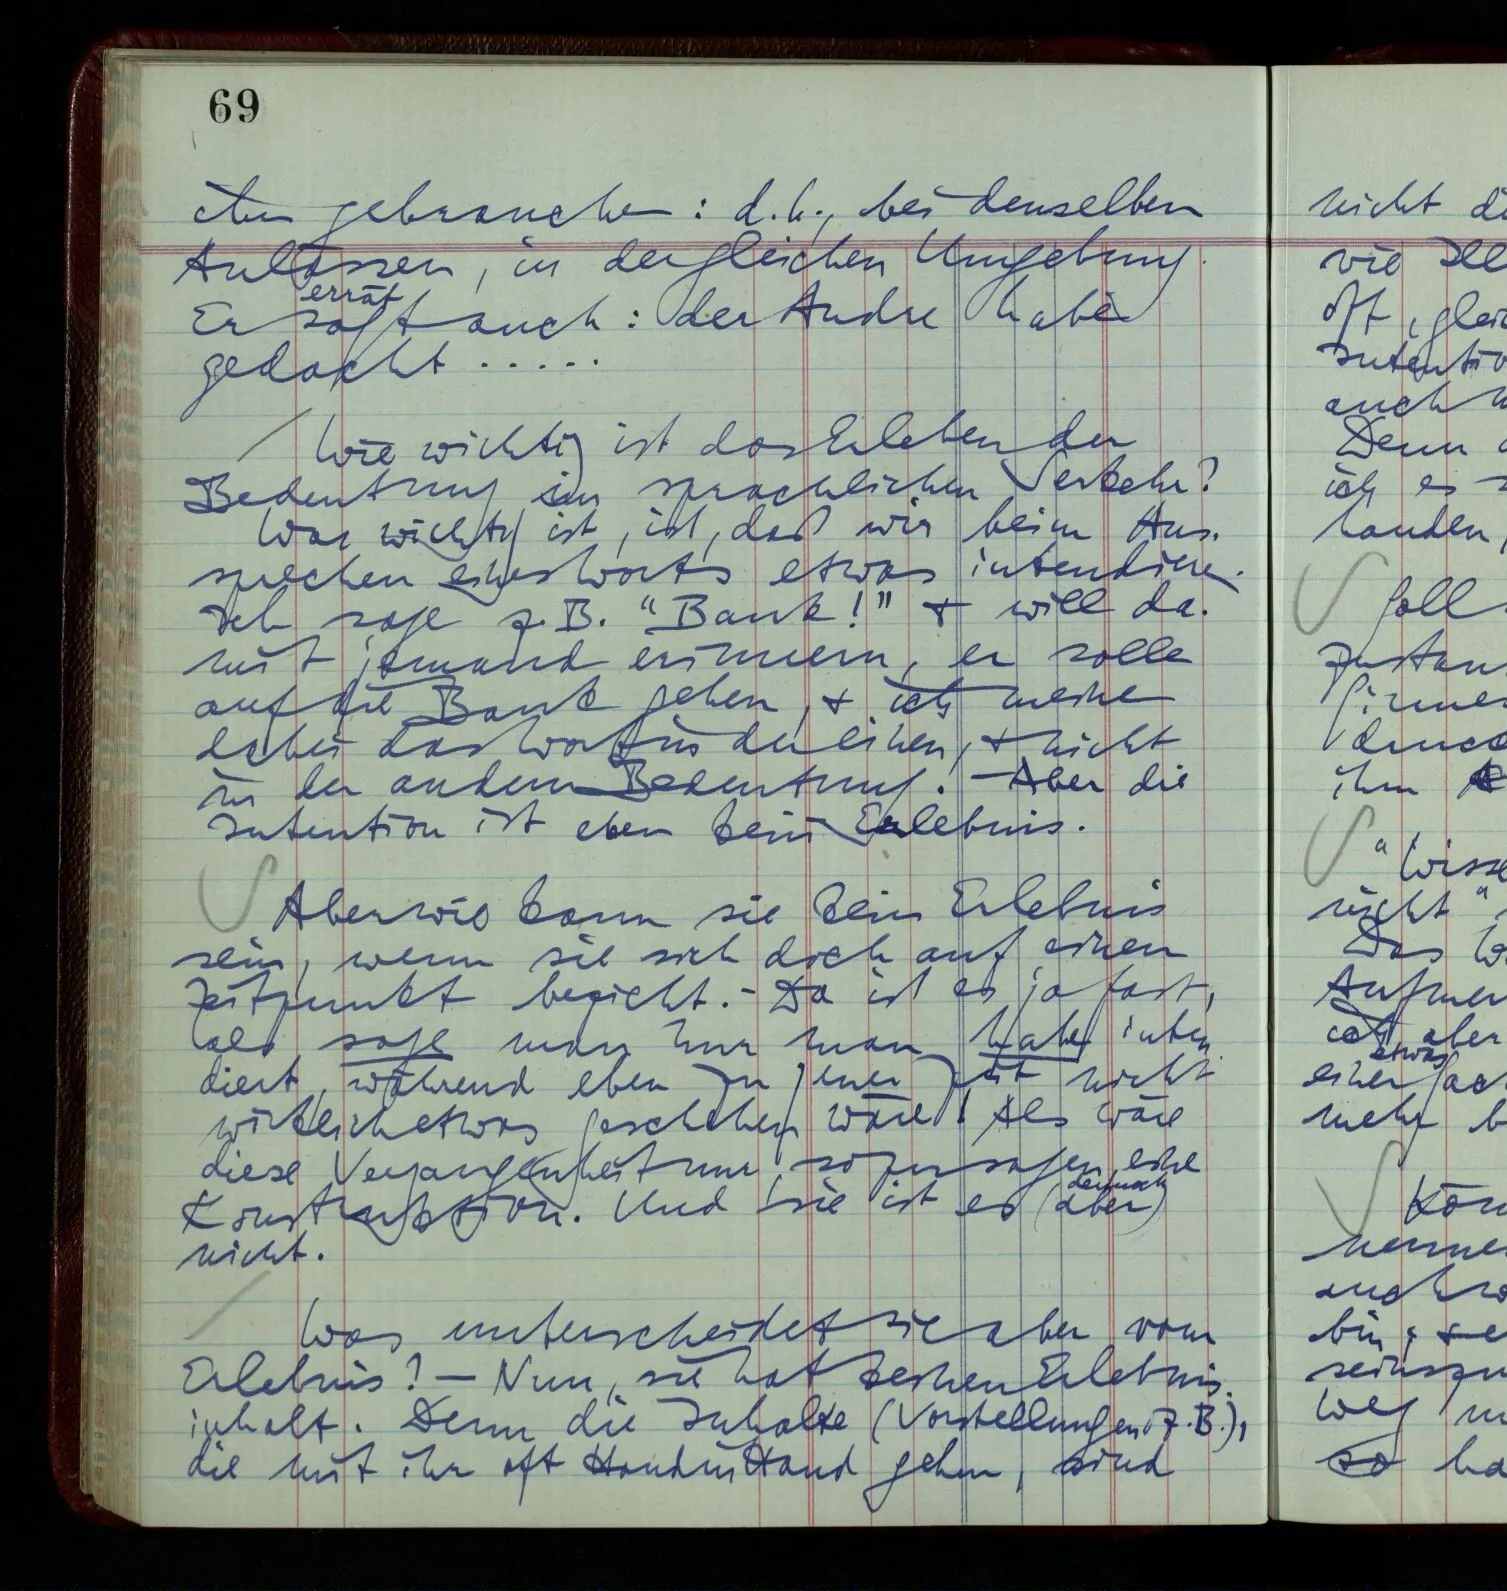 69
ihn gebrauchen: d.h., bei denselben
Anlässen, in der gleichen Umgebung.
errät
Er sagt auch: der Andre habe
gedacht .....
Wie wichtig ist das Erleben der
Bedeutung im sprachlichen Verkehr?
Was wichtig ist, ist, daß wir beim Aus-
sprechen eines Worts etwas intendieren.
Ich sage z.B. "Bank!" & will da-
mit jemand erinnern, er solle
auf die Bank gehen, & ich meine
dabei das Wort in der einen, & nicht
in der andern Bedeutung. – Aber die
Intention ist eben kein Erlebnis.
Aber wie kann sie kein Erlebnis
sein, wenn sie sich doch auf einen
Zeitpunkt bezieht. – Da ist es ja fast,
als sage man nur man habe inten-
diert, während eben zu jener Zeit nicht
wirklich etwas geschehen wäre! Als wäre
diese Vergangenheit nur sozusagen eine
dennoch
Konstruktion. Und sie ist es (aber)
nicht.
Was unterscheidet sie aber vom
Erlebnis? – Nun, sie hat keinen Erlebnis-
inhalt. Denn die Inhalte (Vorstellungen z.B.),
die mit ihr oft Hand in Hand gehen, sind
nicht di
wie
oft, gleic
Intentio
auch
Denn
ich es
handen,
Soll
Zustan
druc
ihm
"Wisse
nicht"
Das W
Aufmer
aber
etwas
einer
mehr b
Kön
nenne
auch w
bin,
seins
Weg
so ha